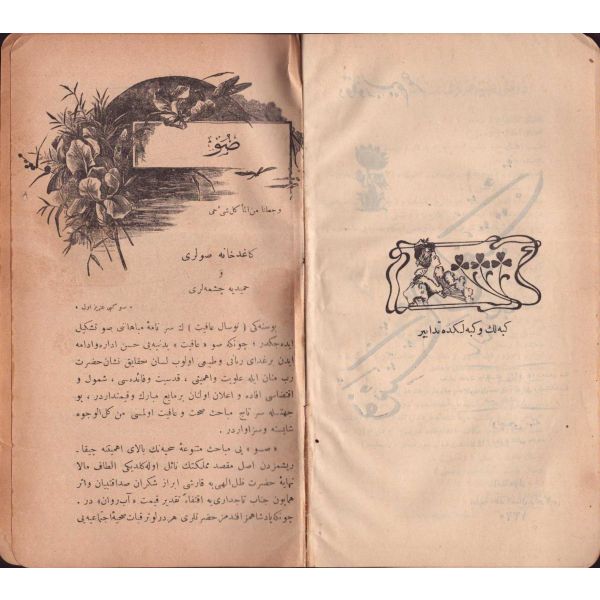 صو
وجعلنا من الماء كل شیء حی
كاغدخانه صولری
و
حمیدیه چشمه‌لری
« صو كبی عزیز اول »
بوسنه‌كی ( نوسال عافیت ) ك سر نامهٔ مباهاتی صو تشكیل
ایده‌جكدر ؛ چونكه صو « عافیت » بدنیه‌یی حسن اداره و ادامه
ایدن برغدای ربانی وطبیعی اولوب لسان حقایق نشان حضرت
رب منان ایله علویت واهمیتی ، قدسیت وفائده‌سی ، شمول و
اقتضاسی افاده و اعلان اولنان برمایع مبارك وقیمتداردر . بو
جهتله سر تاج مباحث صحت و عافیت اولمسی من كل الوجوه
شایسته وسزاواردر .
« صو » یی مباحث متنوعهٔ صحیه‌نك بالای اهمیتنه چیقا-
ریشمزدن اصل مقصد مملكتك نائل اوله‌كلدیكی الطاف مالا
نهایهٔ حضرت ظل‌اللهی‌یه قارشی ابراز شكران صداقتیان واثر
همایون جناب تاجداری‌یه اقتفاءً تقدیر قیمت « آب روان » در .
چونكه پادشاهمز افندمز حضرتلری هردرلو ترقیات صحیهٔ اجتماعیه‌یی
كبه‌لك و كبه‌لكده تدابیر